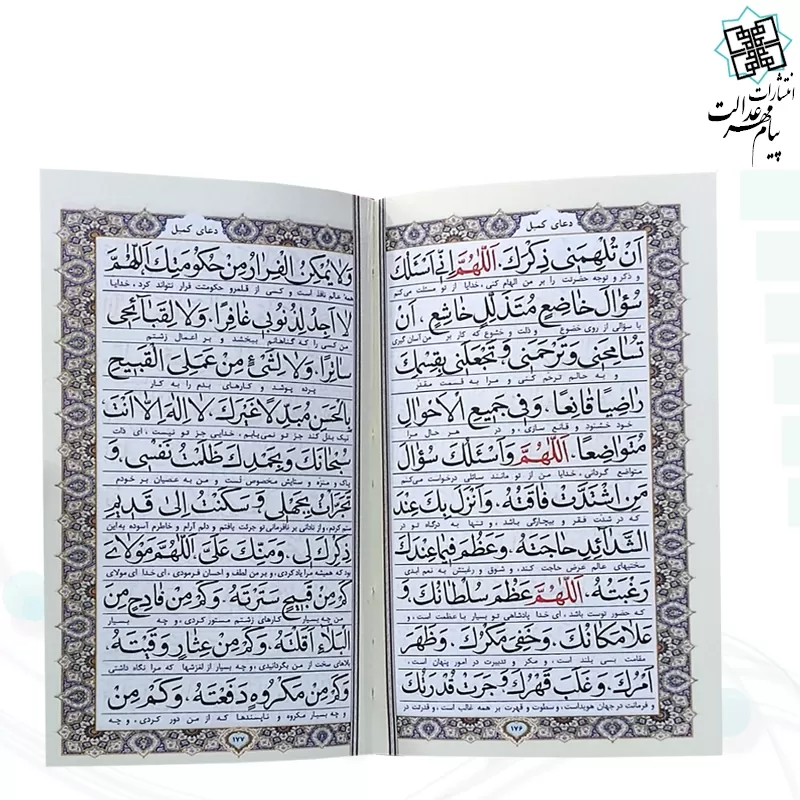 انتشارات
پیام مهر عدالت
دعای کمیل
اَنْ تُلْهِمَنی ذِکْرَكَ. اَللّهُمَّ اِنّی اَسْئَلُكَ
و ذکر و توجه حضرتت را بر من الهام کنی، خدایا از تو مسئلت می‌کنم
سُؤالَ خاضِعٍ مُتَذَلِّلٍ خاشِعٍ. اَنْ
با سؤالی از روی خضوع و ذلت و خشوع که کار بر من آسان گیری
تُسامِحَنی وَ تَرْحَمَنی وَ تَجْعَلَنی بِقِسْمِكَ
و به حالم ترحم کنی و مرا به قسمت مقدر
راضِیاً قانِعاً. وَفی جَمیعِ الْاَحْوالِ
خود خشنود و قانع سازی، و در هر حال مرا
مُتَواضِعاً. اَللّهُمَّ وَاَسْئَلُكَ سُؤالَ
متواضع گردانی، خدایا من از تو مانند سائلی درخواست می‌کنم
مَنِ اشْتَدَّتْ فاقَتُهُ. وَ اَنْزَلَ بِكَ عِنْدَ
که در شدت فقر و بیچارگی باشد، و تنها به درگاه تو در
الشَّدائِدِ حاجَتَهُ. وَعَظُمَ فیما عِنْدَكَ
سختیهای عالم عرض حاجت کند، و شوق و رغبتش به نعم ابدی
رَغْبَتُهُ. اَللّهُمَّ عَظُمَ سُلْطانُكَ. وَ
که حضور توست باشد، ای خدا پادشاهی تو بسیار با عظمت است، و
عَلا مَکانُكَ. وَخَفِیَ مَکْرُكَ. وَظَهَرَ
مقامت بسی بلند است، و مکر و تدبیرت در امور پنهان است،
اَمْرُكَ. وَغَلَبَ قَهْرُكَ وَجَرَتْ قُدْرَتُكَ
و فرمانت در جهان هویداست، و سطوت و قهرت بر همه غالب است، و قدرتت در
۱۷۶
دعای کمیل
وَلا یُمْکِنُ الْفِرارُ مِنْ حُکُومَتِكَ اَللّهُمَّ
همه عالم نافذ است و کسی از قلمرو حکومتت فرار نتواند کرد، خدایا
لا اَجِدُ لِذُنُوبی غافِراً. وَلا لِقَبائِحی
من کسی را که گناهانم ببخشد و بر اعمال زشتم
ساتِراً. وَلا لِشَیْءٍ مِنْ عَمَلِیَ الْقَبیحِ
پرده پوشد و کارهای بدم را به کار
بِالْحَسَنِ مُبَدِّلاً غَیْرَكَ. لا اِلهَ اِلاّ اَنْتَ
نیک بدل کند جز تو نمی‌یابم، خدایی جز تو نیست، ای ذات
سُبْحانَكَ وَبِحَمْدِكَ ظَلَمْتُ نَفْسی. وَ
پاک و منزه و ستایش مخصوص تست و من به عصیان بر خودم
تَجَرَّأْتُ بِجَهْلی وَ سَکَنْتُ اِلی قَدیمِ
ستم کردم، و از نادانی بر نافرمانی تو جرئت یافتم و دلم آرام و خاطرم آسوده به این
ذِکْرِكَ لی. وَمَنِّكَ عَلَیَّ. اَللّهُمَّ مَوْلایَ
بود که همیشه مرا یاد کردی، و بر من لطف و احسان فرمودی، ای خدا ای مولای
کَمْ مِنْ قَبیحٍ سَتَرْتَهُ. وَکَمْ مِنْ فادِحٍ مِنَ
من چه بسیار کارهای زشتم مستور کردی، و چه بسیار
الْبَلاءِ اَقَلْتَهُ. وَکَمْ مِنْ عِثارٍ وَقَیْتَهُ.
بلاهای سخت از من بگردانیدی، و چه بسیار از لغزشها که مرا نگاه داشتی
وَکَمْ مِنْ مَکْرُوهٍ دَفَعْتَهُ. وَکَمْ مِنْ
و چه بسیار مکروه و ناپسندها که از من دور کردی، و چه
۱۷۷